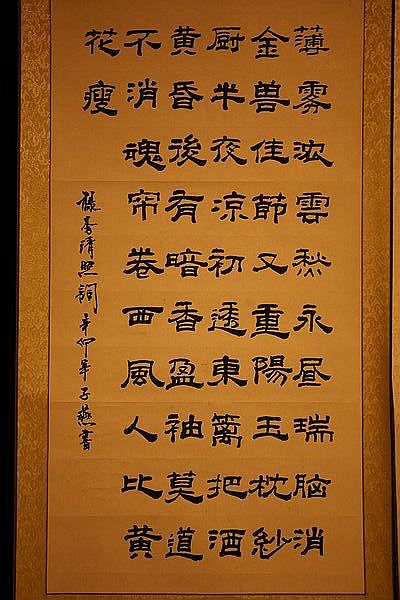 薄雾浓雲愁永昼瑞脑消
金兽佳節又重陽玉枕紗
厨半夜凉初透東篱把酒
黄昏後有暗香盈袖莫道
不消魂帘卷西風人比黄
花瘦
録李清照詞辛卯年子燕書